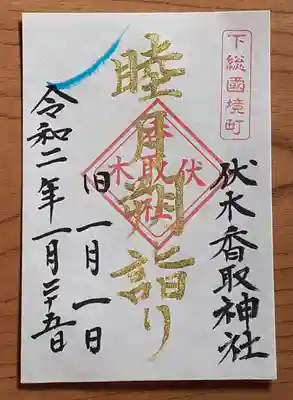 下総國境町
伏木香取神社
睦月朔詣り
伏木
旧一月一日
令和二年一月二十五日